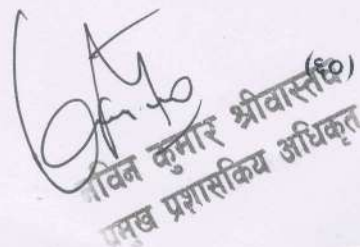 (६०)
कुमार श्रीवास्तव
प्रमुख प्रशासकिय अधिकृत